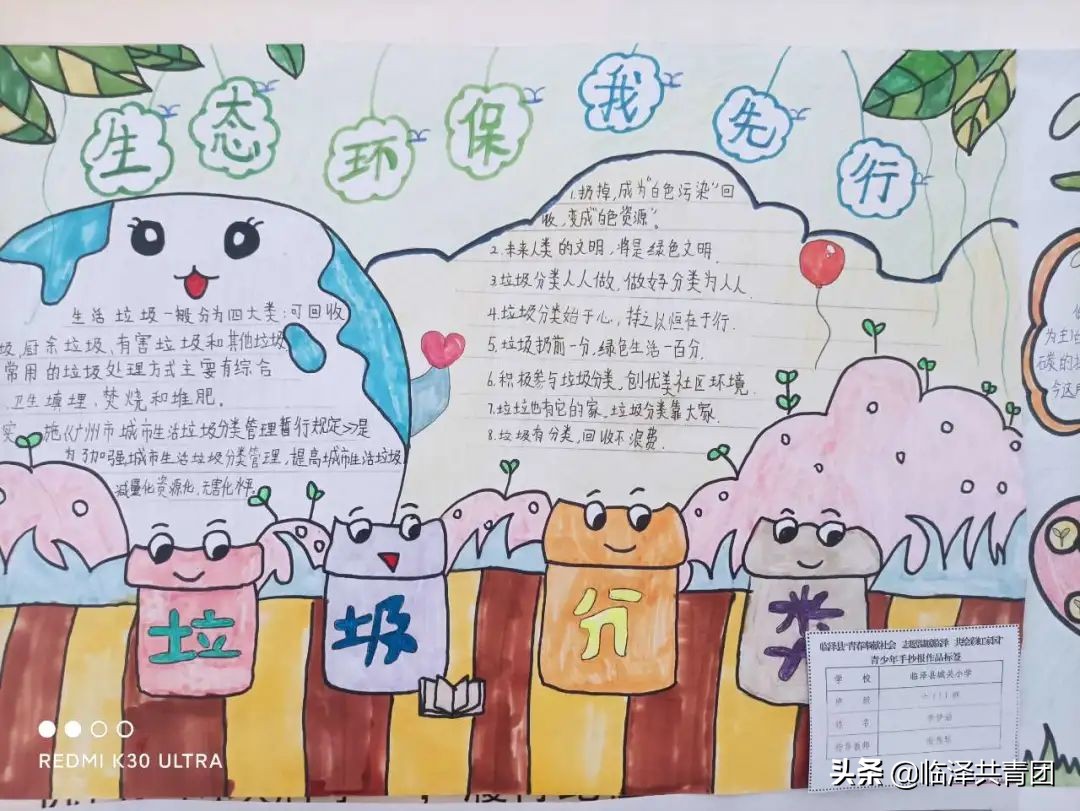 生态环保我先行
生活垃圾一般分为四大类:可回收
圾,厨余垃圾、有害垃圾和其他垃圾
常用的垃圾处理方式主要有综合
卫生填埋、焚烧和堆肥。
实施《广州市城市生活垃圾分类管理暂行规定》是
为了加强城市生活垃圾分类管理,提高城市生活垃圾
减量化资源化,无害化水平.
1.扔掉,成为"白色污染"回
收,变成"白色资源"。
2.未来人类的文明,将是绿色文明.
3.垃圾分类人人做,做好分类为人人.
4.垃圾分类始于心,持之以恒在于行.
5.垃圾扔前一分,绿色生活一百分.
6.积极参与垃圾分类,创优美社区环境.
7.垃圾也有它的家,垃圾分类靠大家.
8.垃圾有分类,回收不浪费.
垃圾分类
为主
碳的
今这
青少年手抄报作品标签
学 校 临泽县城关小学
班 级
姓 名
指导教师
REDMI K30 ULTRA
头条 @临泽共青团